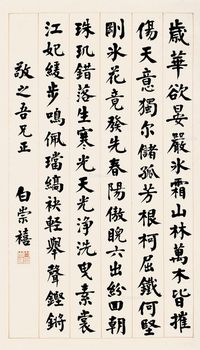 歲華欲晏嚴冰霜山林萬木皆摧
傷天意獨尔儲孤芳根柯屈鐵何堅
剛冰花竟發先春陽傲睨六出紛回翔
珠璣錯落生寒光天光淨洗素裳
江妃緩步鳴佩璫縞袂輕舉聲鏗鏘
敬之吾兄正
白崇禧